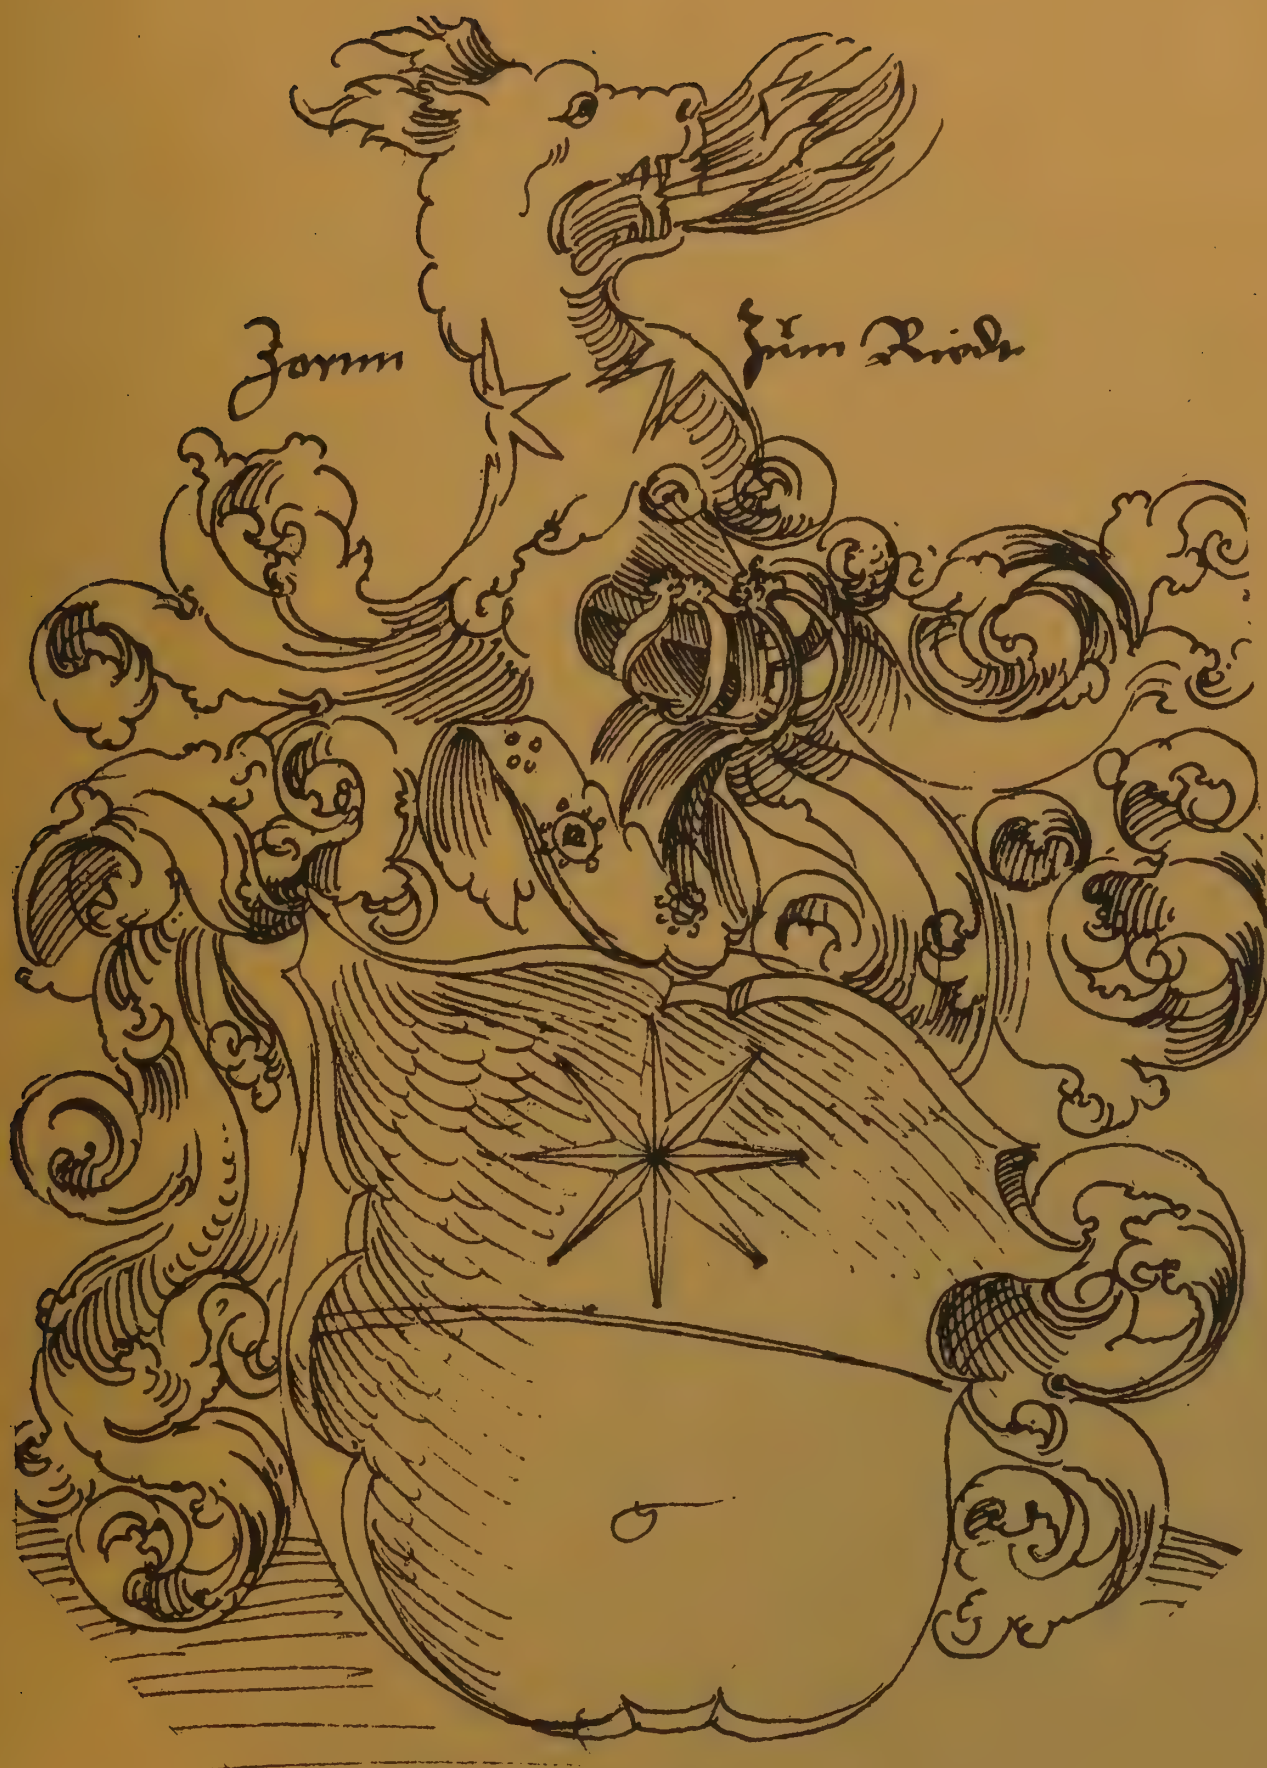 Zornn Zum Riedt